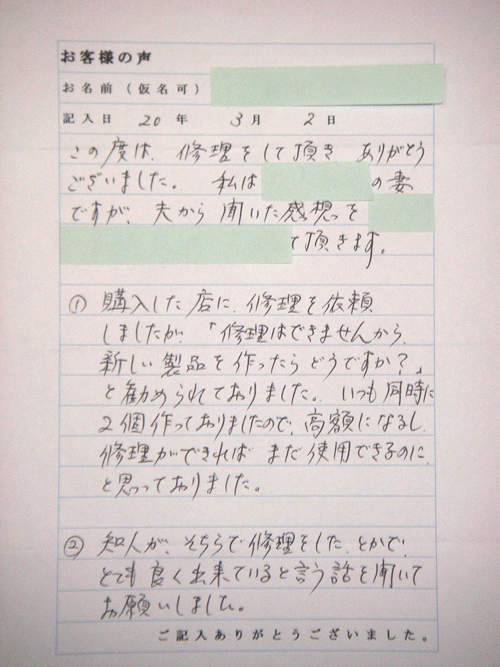 お客様の声
お名前（仮名可）
記入日 20 年 3 月 2 日
この度は、修理をして頂き ありがとう
ございました。 私は の妻
ですが、夫から聞いた感想っを
て頂きます。
① 購入した店に、修理を依頼
しましたが、「修理はできませんから、
新しい製品を作ったらどうですか？」
と勧められておりました。いつも同時に
2個作っておりましたので、高額になるし、
修理ができれば まだ使用できるのに、
と思っておりました。
② 知人が、そちらで修理をした、とかで、
とても良く出来ていると言う話を聞いて
お願いしました。
ご記入ありがとうございました。